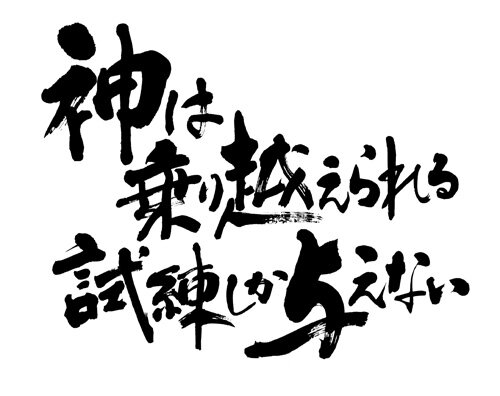 神は
乗り越えられる
試練しか与えない